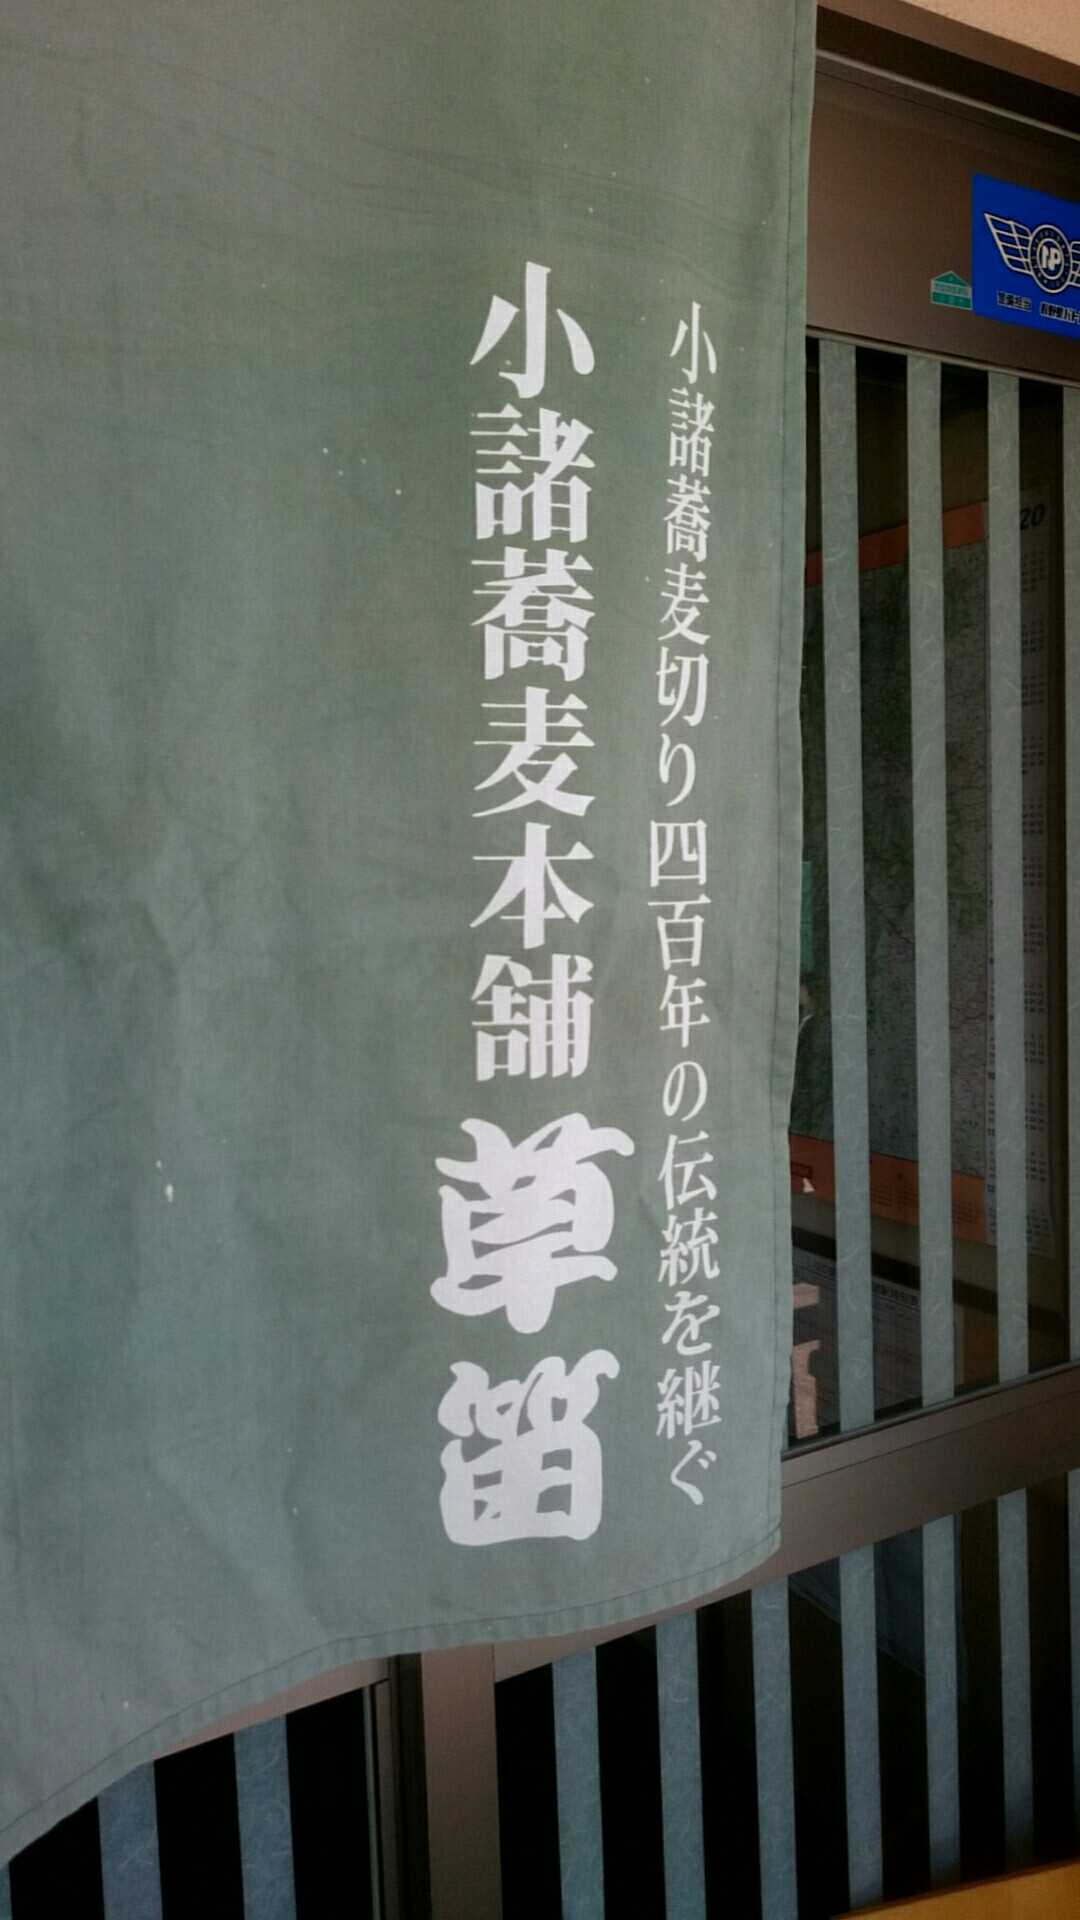 小諸蕎麦切り四百年の伝統を継ぐ
小諸蕎麦本舗 草笛
NP
20